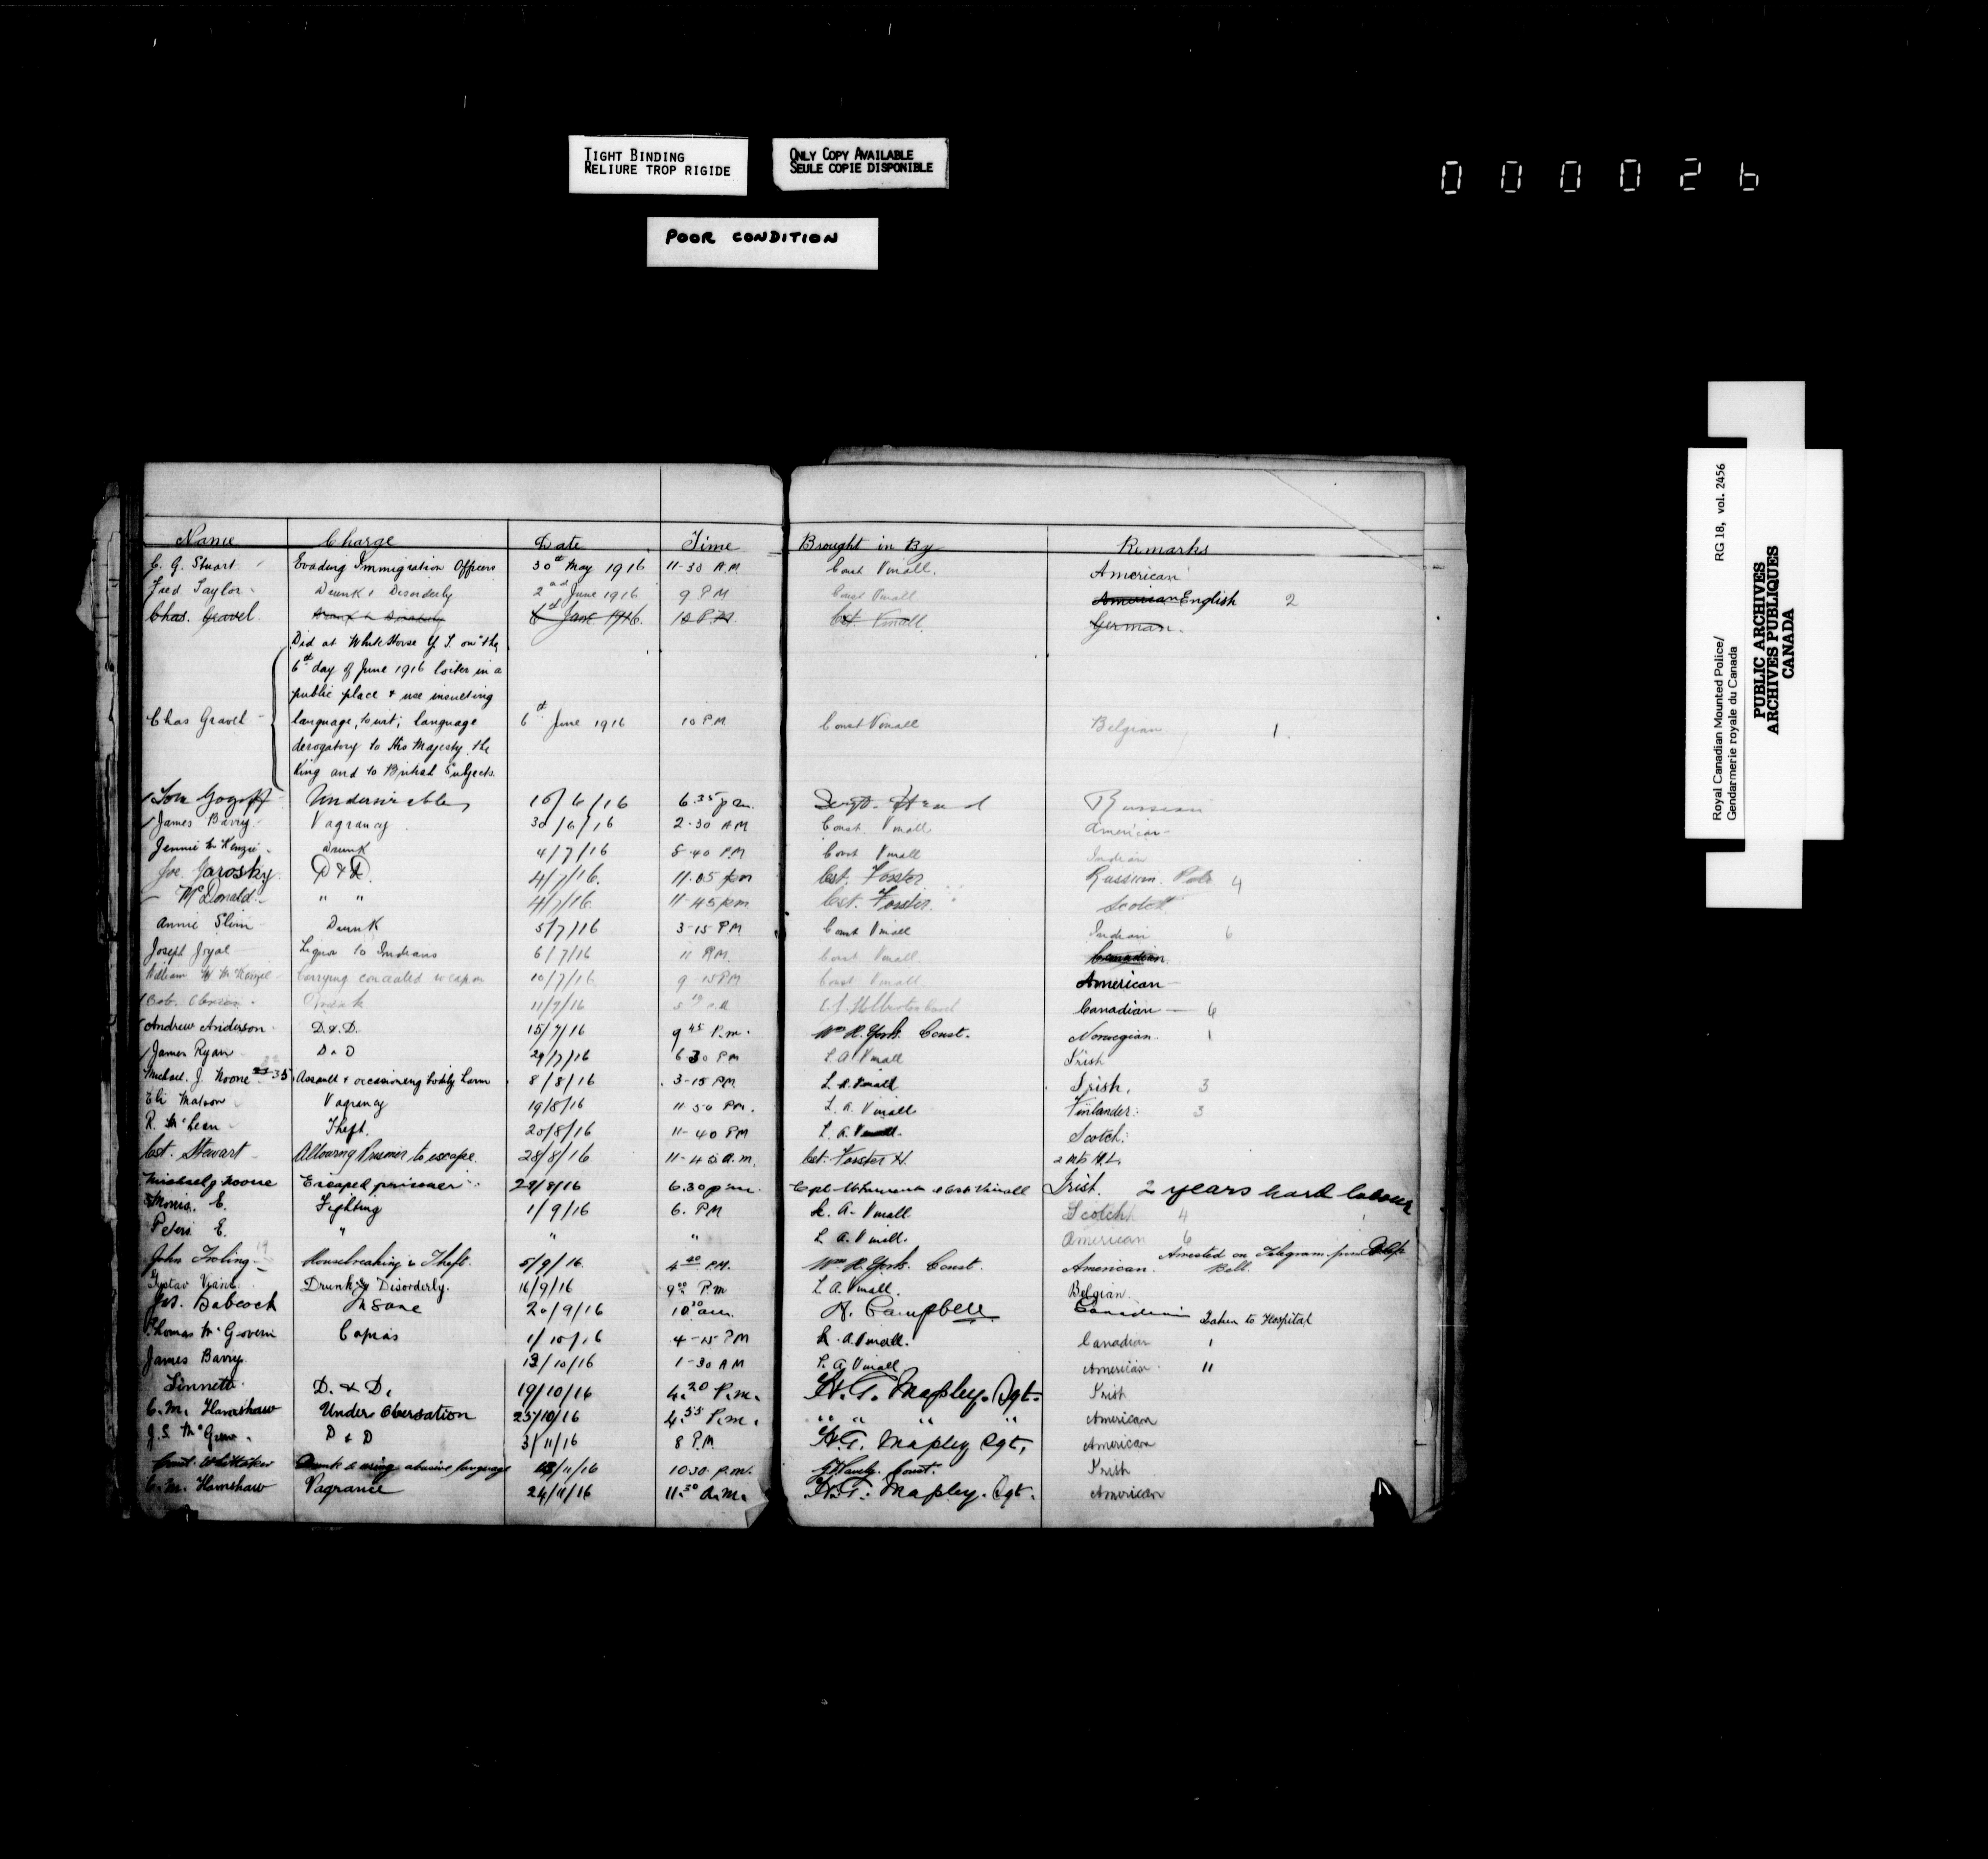 TIGHT BINDING
RELIURE TROP RIGIDE
ONLY COPY AVAILABLE
SEULE COPIE DISPONIBLE
POOR CONDITION
000026
Royal Canadian Mounted Police/ RG 18, vol. 2456
Gendarmerie royale du Canada
PUBLIC ARCHIVES
ARCHIVES PUBLIQUES
CANADA
Name Charge Date Time Brought in By Remarks
C. G. Stuart Evading Immigration Officers 30th May 1916 11-30 A.M Const Vinall. American
Fred Taylor Drunk & Disorderly 2nd June 1916 9 P.M Const Vinall American English 2
Chas. Gravel Drunk & Disorderly 6th June 1916. 10 P.M. Cst. Vinall German.
Did at White Horse Y. T. on the
6th day of June 1916 loiter in a
public place & use insulting
Chas Gravel language, to wit; language 6th June 1916 10 P.M. Const Vinall Belgian 1.
derogatory to His Majesty the
King and to British Subjects.
Tom Undesirable 6.35 pm. Sergt. Head Russian
James Barry Vagrancy 30/6/16 2.30 AM Const. Vinall American
Jennie McKenzie Drunk 4/7/16 8-40 PM Const Vinall Indian
Joe. Jarosky D & D. 4/7/16. 11.05 pm Cst. Forster Russian Pole 4
McDonald " " 4/7/16. 11-45 pm Cst. Forster. Scotch
Annie Slim Drunk 5/7/16 3-15 PM Const Vinall Indian 6
Joseph Joyal Liquor to Indians 6/7/16 11 P.M. Const Vinall Canadian.
William McKenzie Carrying concealed weapon 10/7/16 9-15 PM Const Vinall American
Bob. Drunk 11/7/16 Canadian 6
Andrew Anderson D. & D. 15/7/16 9 45 P.m. Wm R. York Const. Norwegian. 1
James Ryan D & D 29/7/16 6 30 PM L. A. Vinall Irish
Michael. J. Noone 35 Assault & occasioning bodily harm 8/8/16 3-15 PM L. A. Vinall Irish. 3
Eli Matson Vagrancy 19/8/16 11-50 PM. L. A. Vinall Finlander. 3
R. McLean Theft. 20/8/16 11-40 PM L. A. Vinall. Scotch.
Cst. Stewart Allowing Prisoner to escape. 28/8/16 11-45 a.m. Cst. Forster H. 2 Mts H.L.
Michael J Noone Escaped prisoner 6.30 pm. Cpl. & Cst. Vinall Irish. 2 years hard labour
Morris. E. Fighting 1/9/16 6. PM L. A. Vinall Scotch 4
Peters E. " " " L. A. Vinall. American 6
John Housebreaking & Theft. 5/9/16 4 PM. Wm R. York. Const. American. Arrested on Telegram from Supt.
Bell.
Gustav Drunk & Disorderly. 16/9/16 9 00 P.m L. A. Vinall. Belgian.
Jas. Babcock Insane 20/9/16 10 30 am. A. Campbell Canadian Taken to Hospital
Thomas McGovern Capias 1/10/16 4-15 PM L. A. Vinall. Canadian 1
James Barry. 13/10/16 1-30 AM L. A. Vinall American 11
Sinnett. D. & D. 19/10/16 4.20 P.m. H. G. Mapley. Sgt. Irish
C. M. Hamshaw Under Obersation 25/10/16 4.55 P.m. " " " " American
J. S. D & D 3/11/16 8 P.M. H. G. Mapley Sgt. American
Const. Whittaker Drunk & using abusive language 10.30. P.m. Const. Irish
C. M. Hamshaw Vagrance 24/11/16 11.30 a.m. H. G. Mapley. Sgt. American